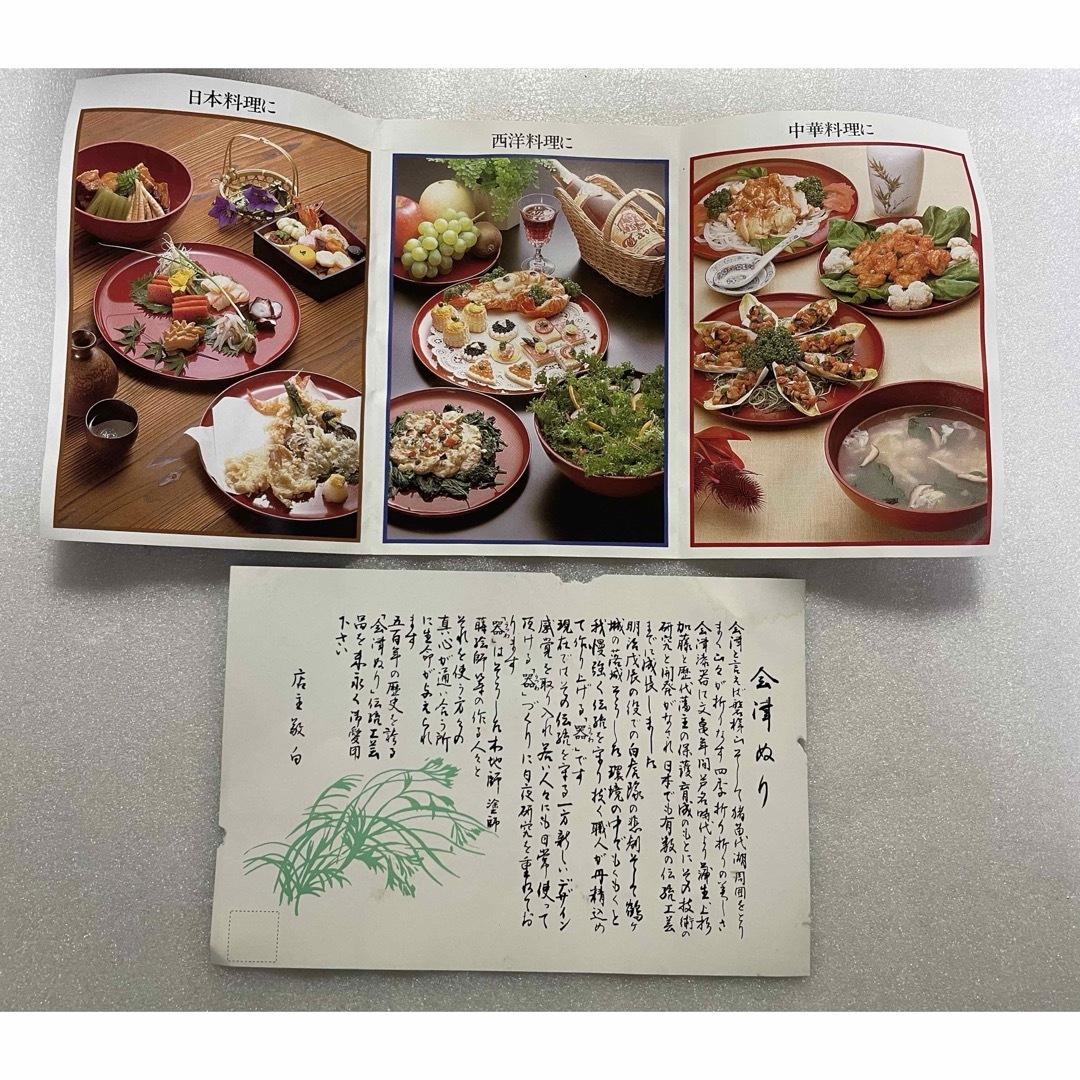 日本料理に
西洋料理に
中華料理に
会津ぬり
会津と言えば磐梯山そして猪苗代湖周囲をとり
まく山々が折りなす四季折り折りの美しさ
会津漆器は文亀年間芦名時代より蒲生上杉
加藤と歴代藩主の保護育成のもとにその技術の
研究と開発がなされ日本でも有数の伝統工芸
までに成長しました
明治戊辰の役での白虎隊の悲劇そして鶴ヶ
城の落城そうした環境の中でもくもくと
我慢強く伝統を守り抜く職人が丹精込め
て作り上げる「器」です
現在ではその伝統を守る一方新しいデザイン
感覚を取り入れ若い人々にも日常使って
頂ける「器」づくりに日夜研究を重ねてお
ります
「器」はそうした木地師塗師
蒔絵師等の作る人々と
それを使う方々の
真心が通い合う所
に生命が与えられ
ます
五百年の歴史を誇る
「会津ぬり」伝統工芸
品を末永く御愛用
下さい
店主敬白